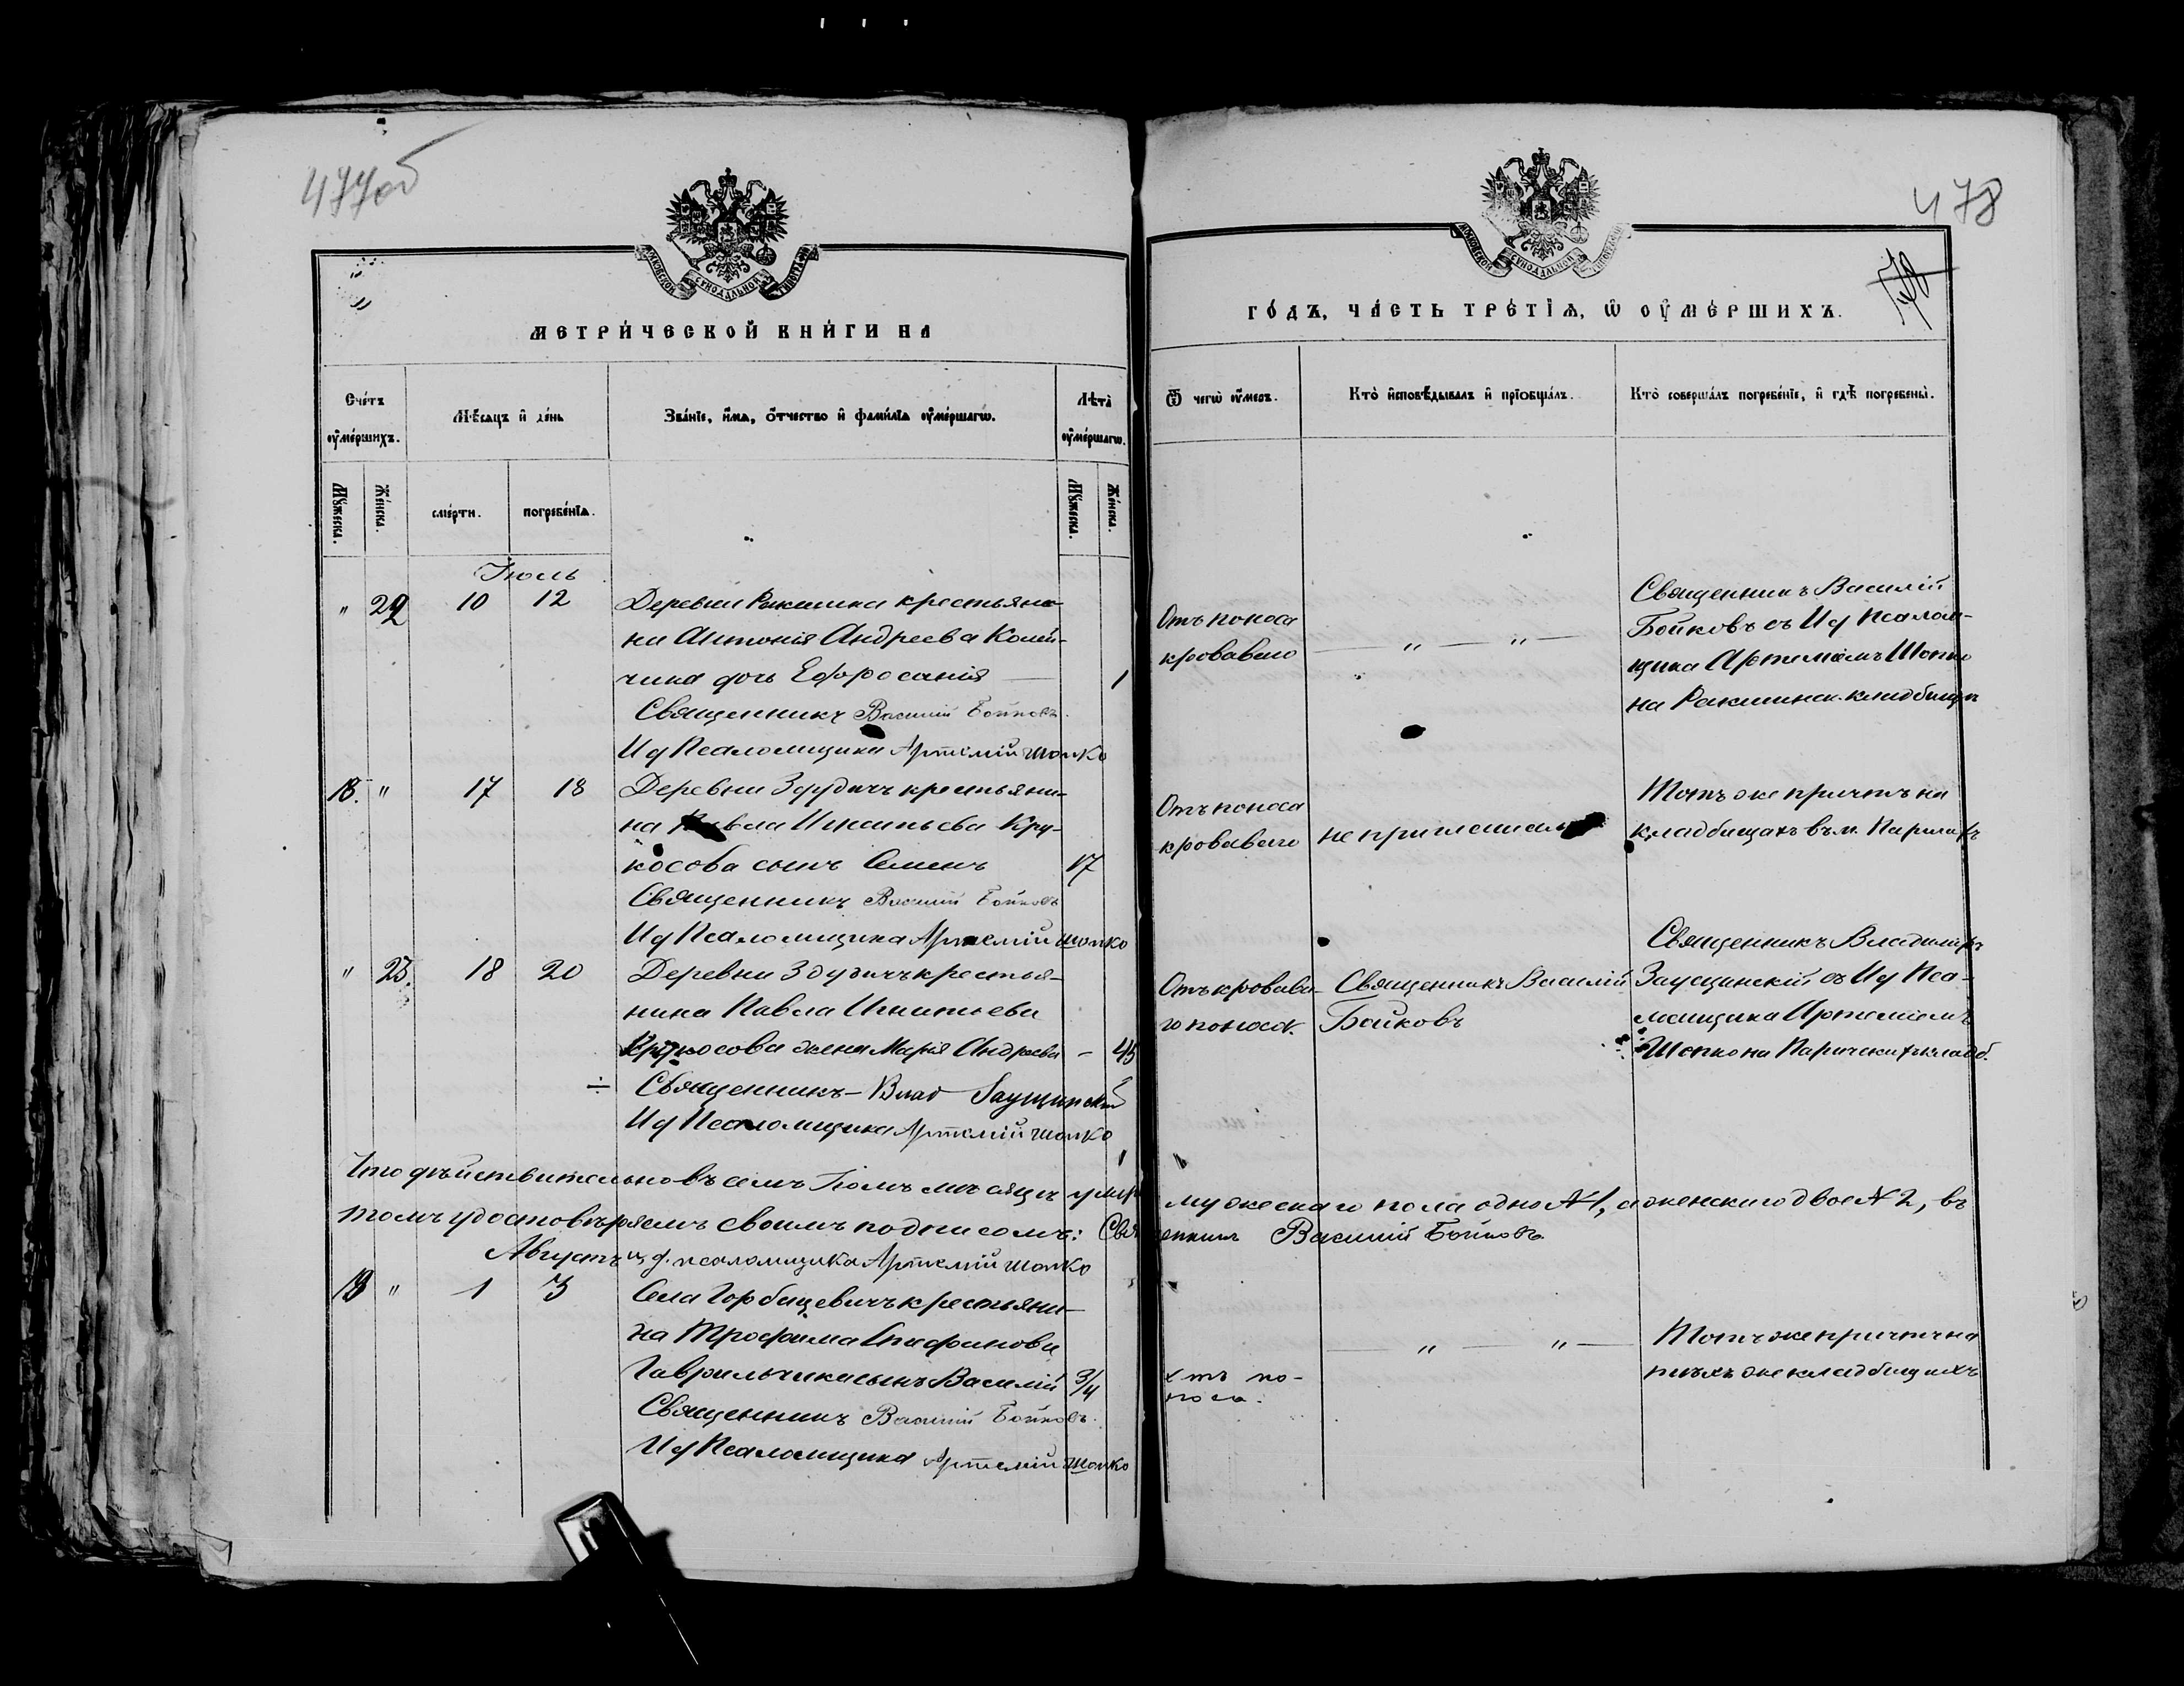 477об
478
МЕТРИ́ЧЕСКОЙ КНИ́ГИ НА
ГО́ДЪ, ЧА́СТЬ ТРЕ́ТІѦ, Ѡ ОУМЕ́РШИХЪ.
Сче́тъ оуме́ршихъ.
Мѣ́сяцъ и де́нь
Зва́нїе, и́мѧ, о́тчество и фами́лїа оуме́ршагѡ.
Лѣта̀ оуме́ршагѡ.
Ѿ чегѡ̀ оу́меръ.
Кто̀ исповѣ́дывалъ и прїобща́лъ.
Кто̀ соверша́лъ погребе́нїе, и гдѣ̀ погребены̀.
Му́жеска.
Же́нска.
сме́рти.
погребе́нїѧ.
Му́жеска.
Же́нска.
Іюль
" 22 10 12 Деревни Ракшина крестьяни-
ни Антонія Андреева Комя-
чина дочь Ефросанія — 1
Священникъ Василій Бойковъ.
Ид Псаломщика Артемій Шопко
Отъ поноса
кроваваго
— " — " —
Священникъ Василій
Бойковъ съ Ид Псалом-
щика Артеміемъ Шопко
на Ракшинск. кладбищѣ
18. " 17 18 Деревни Здудичъ крестьяни-
на Павла Игнатьева Кру-
косова сынъ Семенъ 17
Священникъ Василій Бойковъ
Ид Псаломщика Артемій Шопко
Отъ поноса
кроваваго
не приглашали
Тотъ же причтъ на
кладбищахъ въ м. Паричахъ
" 23. 18 20 Деревни Здудичъ крестья-
нина Павла Игнатьева
Крукосова жена Марія Андреева - 45
÷ Священникъ - Влад Заущинскій
Ид Псаломщика Артемій Шопко
Отъ кровава-
го поноса.
Священникъ Василій
Бойковъ
Священникъ Владиміръ
Заущинскій съ Ид Пса-
ломщика Артеміемъ
Шопко на Паричскихъ кладб.
Что дѣйствительно въ семъ Іюлѣ мѣсяцѣ умер мужескаго пола одно № 1, а женскаго двое № 2, въ
томъ удостовѣряемъ своимъ подписомъ: Священникъ Василій Бойковъ
Августъ и. д. псаломщика Артемій Шопко
19 " 1 3 Села Горбацевичъ крестьяни-
на Трофима Стефанова
Гаврильчика сынъ Василій 3/4
Священникъ Василій Бойковъ.
Ид Псаломщика Артемій Шопко
отъ по-
носа.
— " — " —
Тотъ же причтъ на
тѣхъ же кладбищахъ